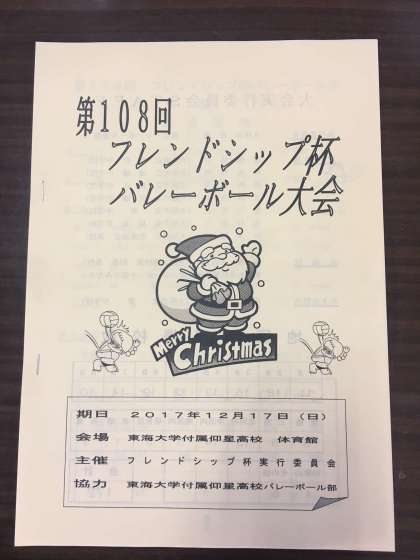 第108回
フレンドシップ杯
バレーボール大会
Merry
Christmas
期日 2017年12月17日(日)
会場 東海大学付属仰星高校 体育館
主催 フレンドシップ杯実行委員会
協力 東海大学付属仰星高校バレーボール部